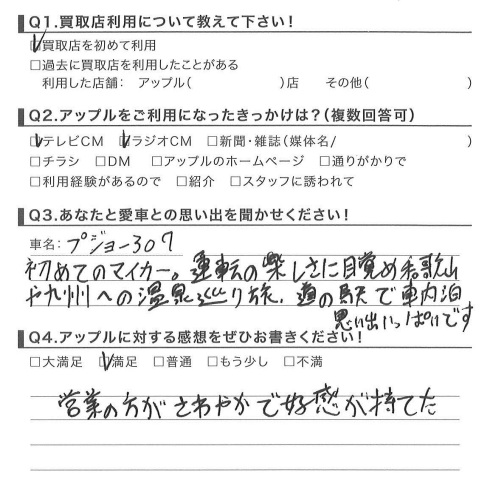 Q1.買取店利用について教えて下さい!
☑買取店を初めて利用
□過去に買取店を利用したことがある
利用した店舗: アップル( )店 その他( )
Q2.アップルをご利用になったきっかけは?(複数回答可)
☑テレビCM ☑ラジオCM □新聞・雑誌(媒体名/ )
□チラシ □DM □アップルのホームページ □通りがかりで
□利用経験があるので □紹介 □スタッフに誘われて
Q3.あなたと愛車との思い出を聞かせてください!
車名: プジョー307
初めてのマイカー。運転の楽しさに目覚め和歌山
や九州への温泉巡り旅、道の駅で車内泊
思い出いっぱいです
Q4.アップルに対する感想をぜひお書きください!
□大満足 ☑満足 □普通 □もう少し □不満
営業の方がさわやかで好感が持てた